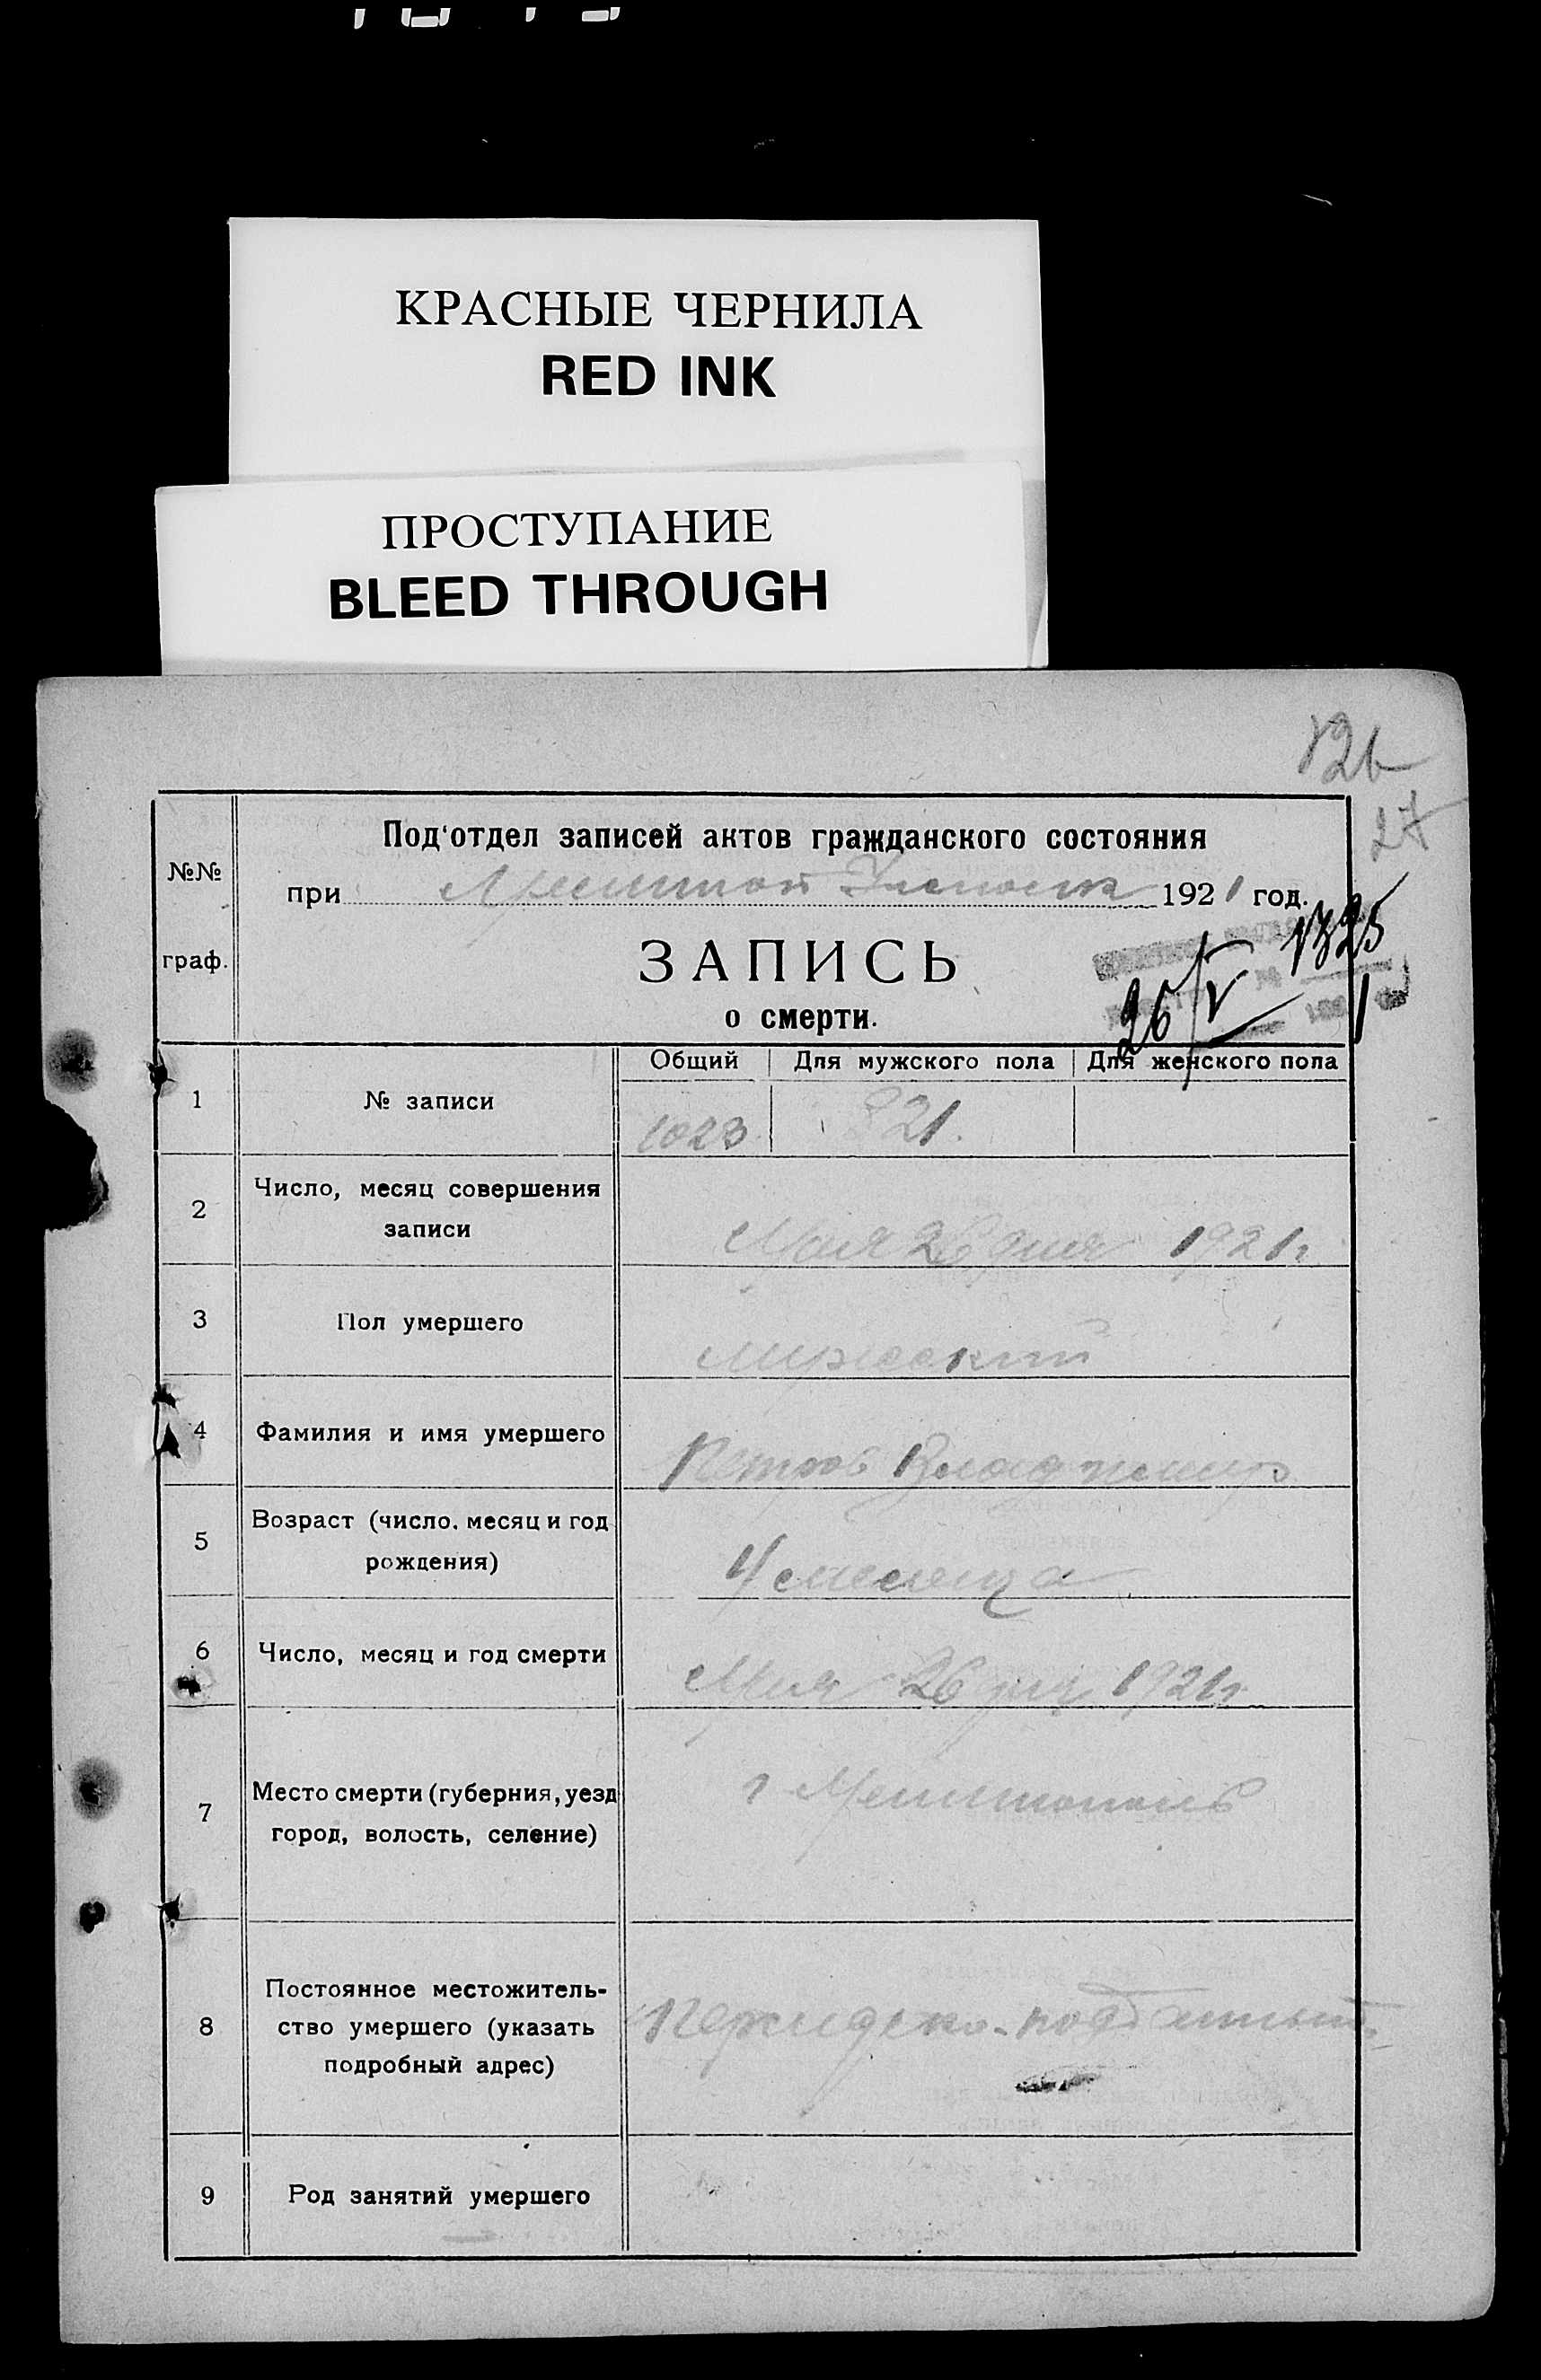 КРАСНЫЕ ЧЕРНИЛА
RED INK
ПРОСТУПАНИЕ
BLEED THROUGH
126
27
№№ граф.
Под'отдел записей актов гражданского состояния
при 1921 год.
ЗАПИСЬ
о смерти.
26/V 1325
Общий Для мужского пола Для женского пола
1 № записи 1023 321.
2 Число, месяц совершения
записи Мая 26 дня 1921 г.
3 Пол умершего мужеский
4 Фамилия и имя умершего Петров Владимир
5 Возраст (число, месяц и год
рождения) 4 месяца
6 Число, месяц и год смерти Мая 26 дня 1921 г.
7 Место смерти (губерния, уезд
город, волость, селение) г Мелитополь
8 Постоянное местожитель-
ство умершего (указать
подробный адрес) подданный
9 Род занятий умершего